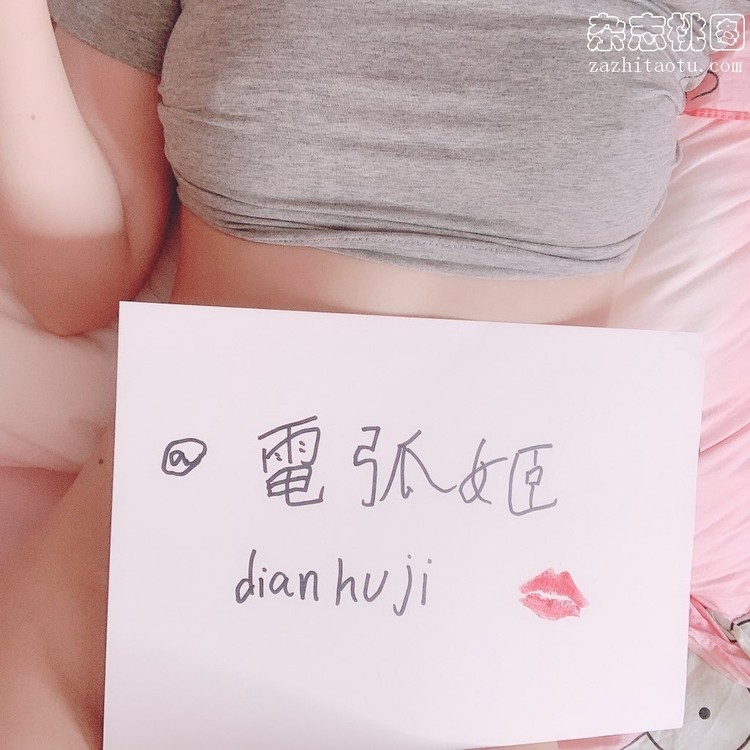 杂志桃图
zazhitaotu.com
@電弧姬
dianhuji